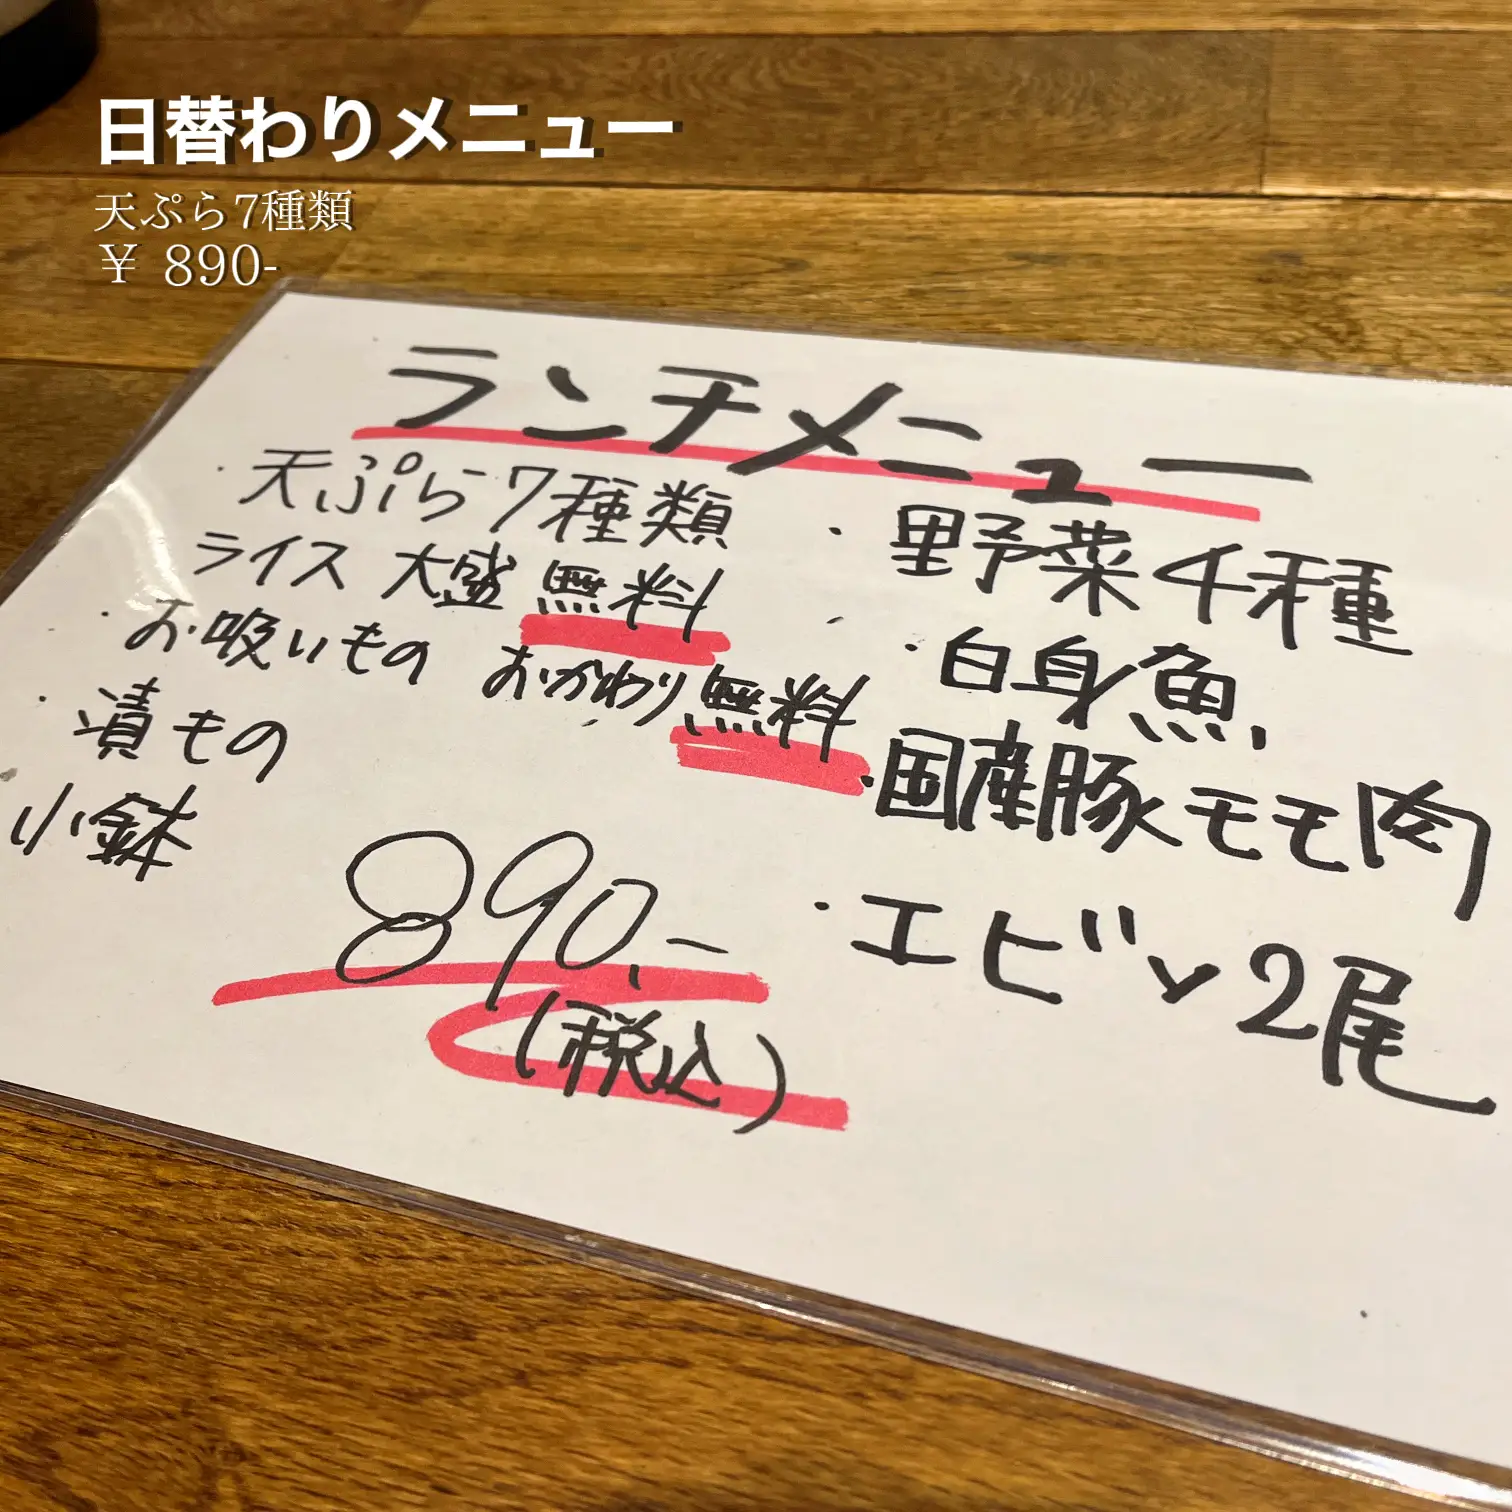 日替わりメニュー
天ぷら7種類
¥ 890-
ランチメニュー
・天ぷら7種類
ライス 大盛無料
・お吸いもの おかわり無料
・漬もの
小鉢
890,-
(税込)
・野菜4種
・白身魚
・国産豚モモ肉
・エビ 2尾